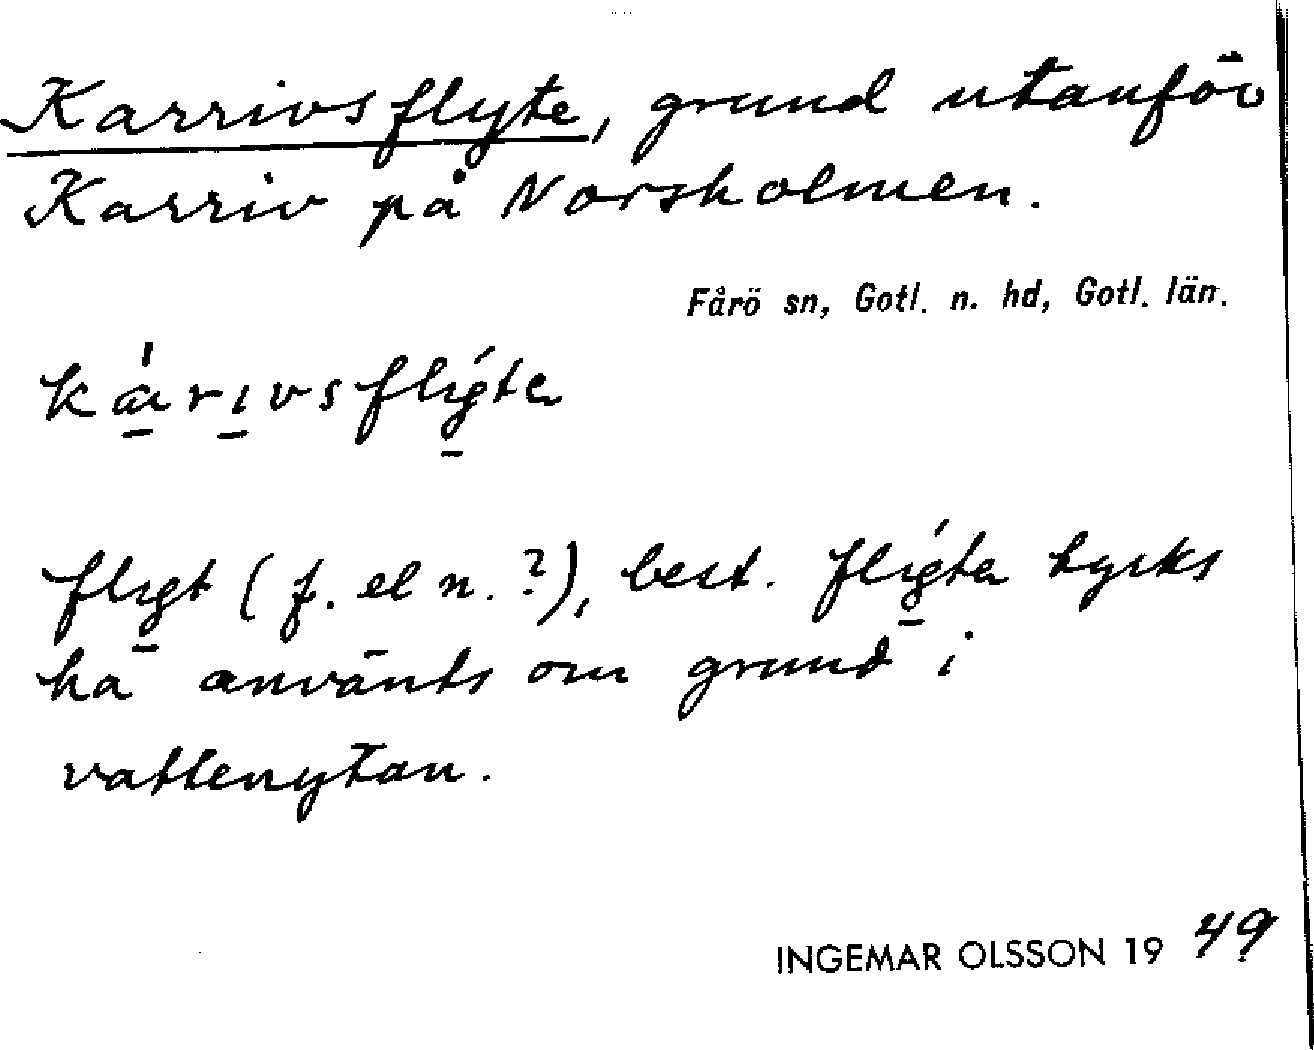 Karrivsflyte, grund utanför
Karriv på Norsholmen.
Fårö sn, Gotl. n. hd, Gotl. län.
(f. el n. ?), best. tycks
ha använts om grund i
vattenytan.
INGEMAR OLSSON 1949